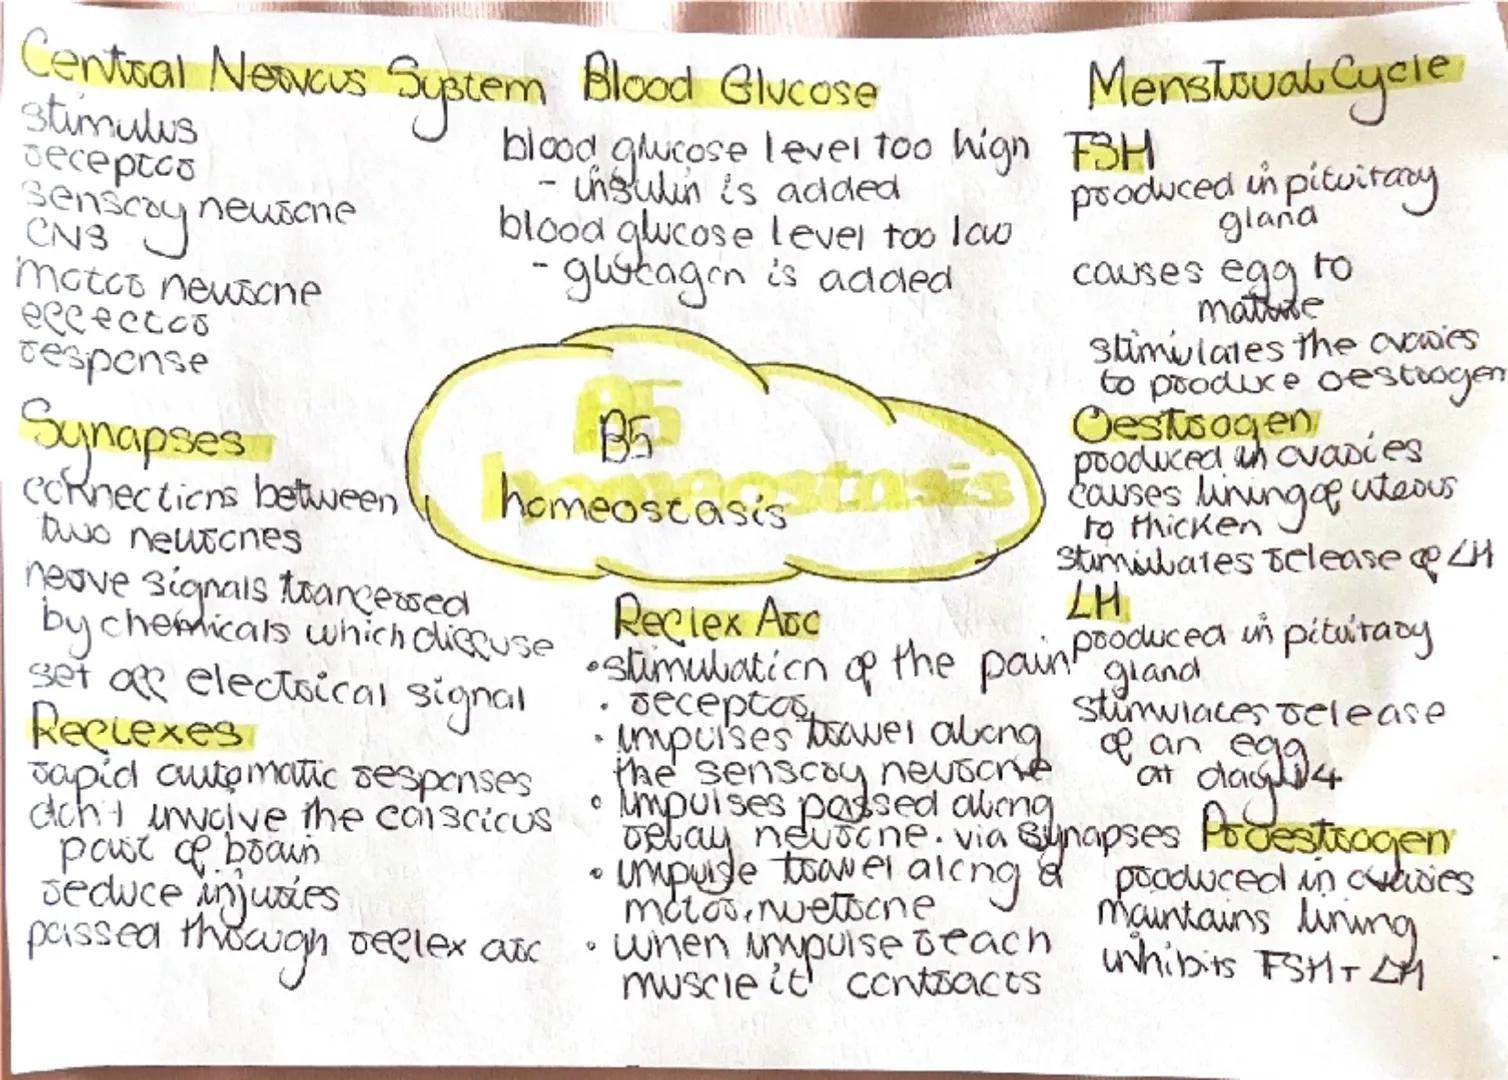 Central Nervous System
stimulus
receptor
sensory neurone
CNS
motor neurone
effector
response
Synapses
connections between
two neurones
nerve signals transferred
by chemicals which diffuse
set off electrical signal
Reflexes
rapid automatic responses
don't involve the conscious
part of brain
reduce injuries
passed through reflex arc
Blood Glucose
blood glucose level too high
- insulin is added
blood glucose level too low
- glucagon is added
B5
B5
homeostasis
homeostasis
Reflex Arc
•stimulation of the pain
• receptor
• impulses travel along
the sensory neurone
• impulses passed along
relay neurone. via synapses
• impulse travel along a
motor nuetrone
• when impulse reach
muscle it contracts
Menstrual Cycle
FSH
produced in pituitary
gland
causes egg to
mature
stimulates the ovaries
to produce oestrogen
Oestrogen
produced in ovaries
causes lining of uterus
to thicken
stimulates release of LH
LH
produced in pituitary
gland
stimulates release
of an egg
at day 14
Proestrogen
produced in ovaries
maintains lining
inhibits FSH + LH